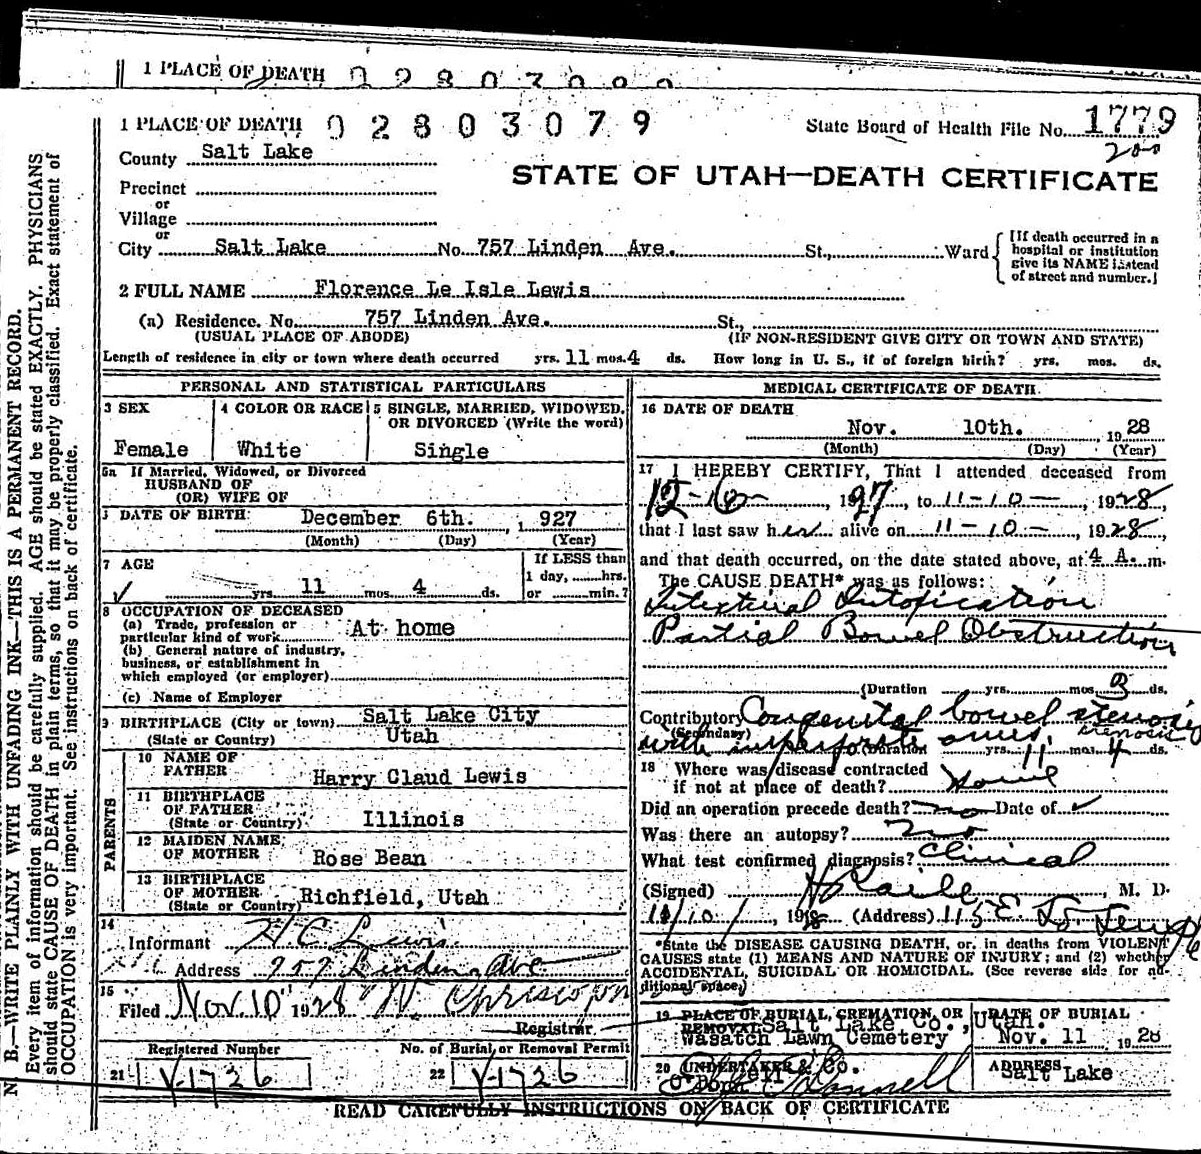 1 PLACE OF DEATH
1 PLACE OF DEATH 02803079 State Board of Health File No. 1779
200
County Salt Lake
STATE OF UTAH—DEATH CERTIFICATE
Precinct
or
Village
or
City Salt Lake No. 757 Linden Ave. St., Ward
[If death occurred in a hospital or institution give its NAME instead of street and number.]
2 FULL NAME Florence Le Isle Lewis
(a) Residence. No. 757 Linden Ave. St.,
(USUAL PLACE OF ABODE) (IF NON-RESIDENT GIVE CITY OR TOWN AND STATE)
Length of residence in city or town where death occurred yrs. 11 mos. 4 ds. How long in U. S., if of foreign birth? yrs. mos. ds.
PERSONAL AND STATISTICAL PARTICULARS
3 SEX
Female
4 COLOR OR RACE
White
5 SINGLE, MARRIED, WIDOWED,
OR DIVORCED (Write the word)
Single
5a If Married, Widowed, or Divorced
HUSBAND OF
(OR) WIFE OF
DATE OF BIRTH December 6th. , 1927
(Month) (Day) (Year)
7 AGE
yrs. 11 mos. 4 ds.
If LESS than
1 day, hrs.
or min.?
8 OCCUPATION OF DECEASED
(a) Trade, profession or
particular kind of work At home
(b) General nature of industry,
business, or establishment in
which employed (or employer)
(c) Name of Employer
9 BIRTHPLACE (City or town) Salt Lake City
(State or Country) Utah
PARENTS
10 NAME OF
FATHER Harry Claud Lewis
11 BIRTHPLACE
OF FATHER
(State or Country) Illinois
12 MAIDEN NAME
OF MOTHER Rose Bean
13 BIRTHPLACE
OF MOTHER
(State or Country) Richfield, Utah
14
Informant H C Lewis
Address 757 Linden Ave
15
Filed Nov. 10 1928
Registrar.
Registered Number
21 V-1726
No. of Burial or Removal Permit
22 V-1726
MEDICAL CERTIFICATE OF DEATH
16 DATE OF DEATH
Nov. 10th. , 1928
(Month) (Day) (Year)
17 I HEREBY CERTIFY, That I attended deceased from
12-16- , 1927, to 11-10- , 1928,
that I last saw her alive on 11-10- , 1928,
and that death occurred, on the date stated above, at 4 A. m.
The CAUSE DEATH* was as follows:
Intestinal Intoxication
Partial Bowel Obstruction
(Duration yrs. mos. 3 ds.
Contributory Congenital bowel stenosis
stenosis
(Secondary)
with imperforate anus (Duration yrs. 11 mos. 4 ds.
18 Where was disease contracted
if not at place of death? Home
Did an operation precede death? no Date of
Was there an autopsy? no
What test confirmed diagnosis? Clinical
(Signed) , M. D.
11/10/, 1928 (Address) 115 E. So Temple
*State the DISEASE CAUSING DEATH, or, in deaths from VIOLENT
CAUSES state (1) MEANS AND NATURE OF INJURY; and (2) whether
ACCIDENTAL, SUICIDAL OR HOMICIDAL. (See reverse side for additional space.)
19 PLACE OF BURIAL, CREMATION, OR
REMOVAL Salt Lake Co., Utah.
Wasatch Lawn Cemetery
DATE OF BURIAL
Nov. 11 1928
20 UNDERTAKER & Co.
O'Donnell
ADDRESS
Salt Lake
READ CAREFULLY INSTRUCTIONS ON BACK OF CERTIFICATE
N. B.—WRITE PLAINLY WITH UNFADING INK—THIS IS A PERMANENT RECORD.
Every item of information should be carefully supplied. AGE should be stated EXACTLY. PHYSICIANS
should state CAUSE OF DEATH in plain terms, so that it may be properly classified. Exact statement of
OCCUPATION is very important. See instructions on back of certificate.